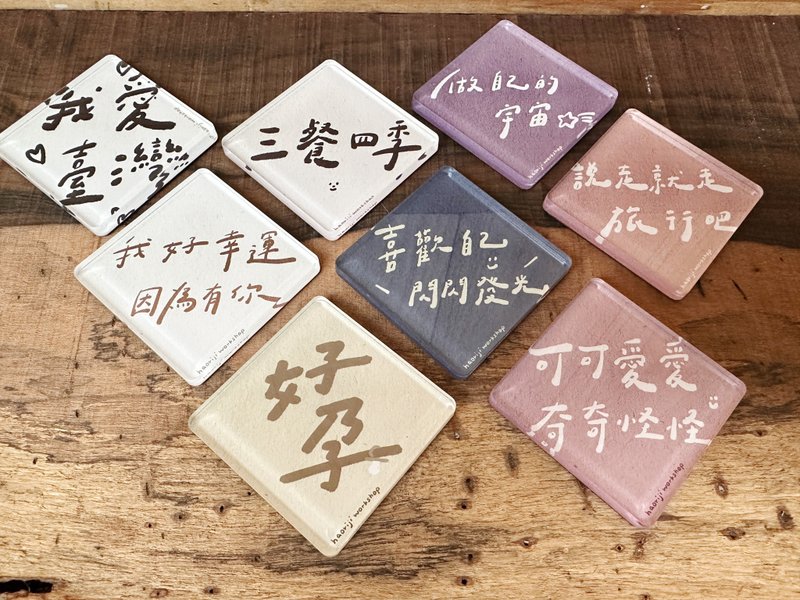 我愛
臺灣
三餐四季
haoriji workshop
做自己的
宇宙
haoriji workshop
說走就走
旅行吧
haoriji workshop
我好幸運
因為有你
haoriji workshop
喜歡自己
閃閃發光
haoriji workshop
好
孕
haoriji workshop
可可愛愛
奇奇怪怪
haoriji workshop